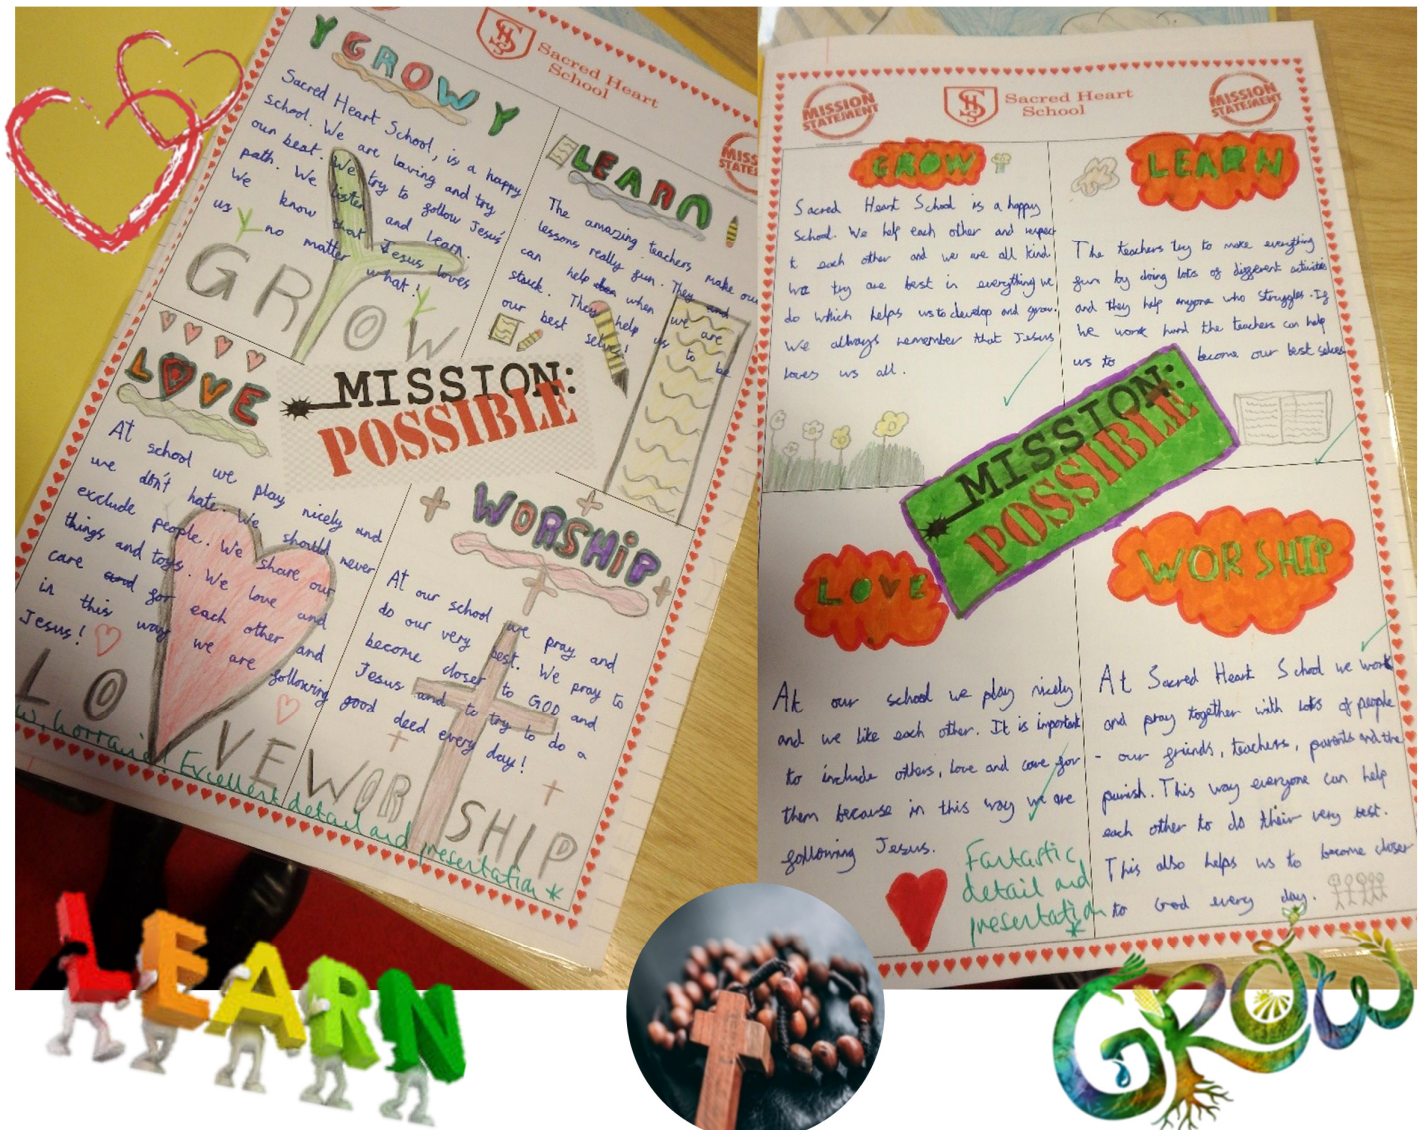 Y GROW Y
Sacred Heart
School
Sacred Heart School, is a happy
school. We are loving and try
our best. We try to follow Jesus'
path. We listen and learn.
We know that Jesus loves
us no matter what!
GROW
LEARN
MISS
STATE
The amazing teachers make our
lessons really fun. They and
can help when we are
stuck. They help us to be
our best selves!
LOVE
At school we play nicely and
we don't hate. We should never
exclude people. We share our
things and toys. We love and
care and for each other and
in this way we are following
Jesus!
LOVE
MISSION:
POSSIBLE
WORSHiP
At our school we pray and
do our very best. We pray to
become closer to GOD and
Jesus and to try to do a
good deed every day!
WORSHIP
Excellent detail and presentation *
MISSION
STATEMENT
Sacred Heart
School
MISSION
STATEMENT
GROW
Sacred Heart School is a happy
school. We help each other and respec
t each other and we are all kind.
We try are best in everything we
do which helps us to develop and grow.
We always remember that Jesus
loves us all.
LEARN
The teachers try to make everything
fun by doing lots of different activities
and they help anyone who struggles. If
we work hard the teachers can help
us to become our best selves
MISSION:
POSSIBLE
LOVE
At our school we play nicely
and we like each other. It is important
to include others, love and care for
them because in this way we are
following Jesus.
Fantastic
detail and
presentation
*
WORSHIP
At Sacred Heart School we work
and pray together with lots of people
- our friends, teachers, parents and the
parish. This way everyone can help
each other to do their very best.
This also helps us to become closer
to God every day.
LEARN
GROW